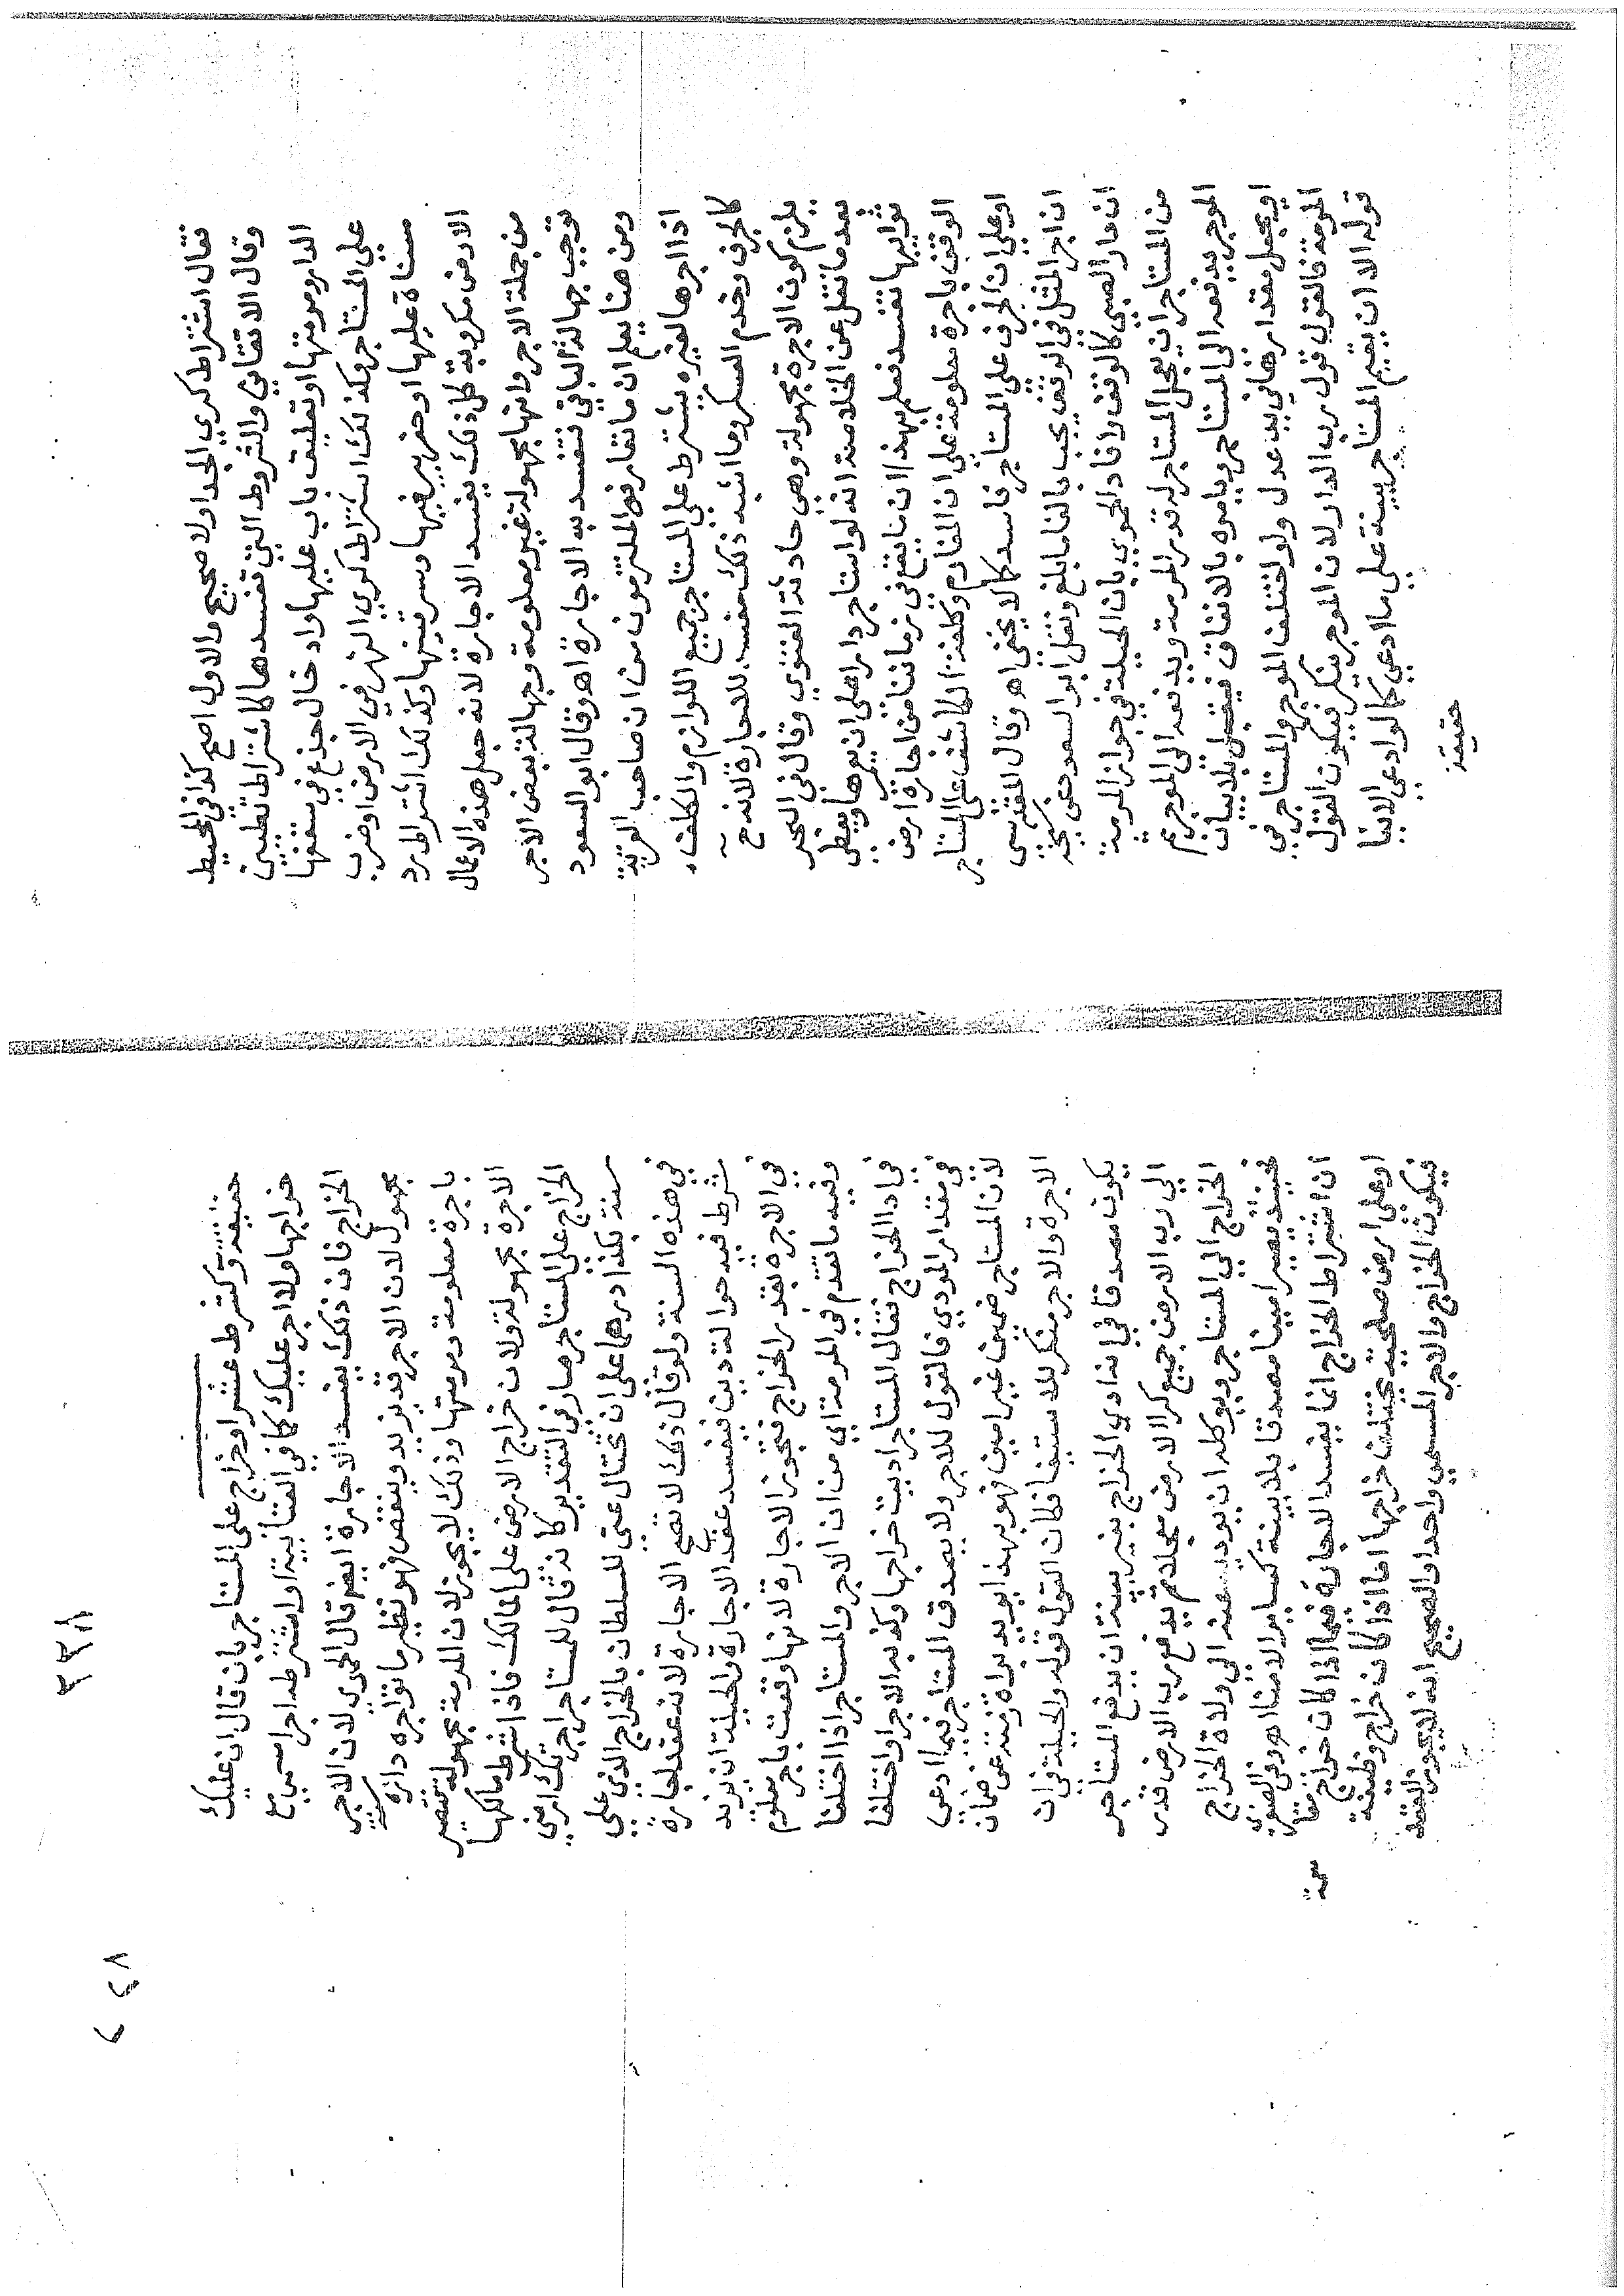 فقال اشتراط كري الجداول لا صحيح والاول اصح كذا في المحيط
وقال الاتقاني والشروط التي تفسدها كاشتراط تطيين
الدار ومرمتها او تعليق باب عليها وادخال جذع في سقفها
علي المستاجر وكذلك اشتراط كري النهر في الارض او ضرب
مسناة عليها او حفر بير فيها وسرقينها وكذلك اشتراط رد
الارض مكروبة كل ذلك يفسد الاجارة لانه جعل هذه الاعمال
من جملة الاجر وانها مجهولة غير معلومة وجهالة بعض الاجر
توجب جهالة الباقي فتفسد به الاجارة اهـ وقال ابو السعود
ومن هنا يعلم ان ما تعارفه الملتزمون من ان صاحب القرية
اذا اجرها لغيره يشترط علي المستاجر جميع اللوازم والكلف
كالجرف وخدم العسكر وما اشبه ذلك مفسد للاجارة لانه ح
يلزم كون الاجرة مجهولة وهي حادثة الفتوي وقال في البحر
بعد ما نقل عن الخلاصة انه لو استاجر دارا علي ان يعمرها ويعطي
نوايبها تفسد فعلم بهذا ان ما يقع في زماننا من اجارة ارض
الوقف باجرة معلومة علي ان المغارم وكلفة الكاشف علي المستاجر
او علي ان الجرف علي المستاجر فاسد كما لا يخفي اهـ وقال المقدسي
ان اجر المثل في الوقف يجب بالغا ما بلغ ونقل ابو السعود عن شيخه
ان دار الصبي كالوقف وافاد الحموي بان الحيلة في جواز المرمة
من المستاجر ان يعجل المستاجر له قدر المرمة ويدفعه الي الموجر ثم
الموجر يدفعه الي المستاجر ويامره بالانفاق فيقبل بلا بيان
او يجعل مقدارها في يد عدل ولو اختلف الموجر والمستاجر في
المرمة فالقول قول رب الدار لان الموجر ينكر فيكون القول
قوله الا ان يقيم المستاجر بينة علي ما ادعي كما لو ادعي الايفا
حقيقة
٢٣٨
٢٤٨
حقيقة وكشرط عشر او خراج علي المستاجر بان قال ان عليك
خراجها ولا اجر عليك كما في العتابية او اشترطه اجر اسمي مع
الخراج فان ذلك يفسد الاجارة ايضا قال الحموي لان الاجر
مجهول لان الاجر قد يزيد وينقص فهو نظير ما تواجره داره
باجرة معلومة ومرمتها وذلك لا يجوز لان المرمة مجهولة فتصير
الاجرة مجهولة ولان خراج الارض علي المالك فاذا شرط مالكها
الخراج علي المستاجر صار في التقدير كانه قال للمستاجر اجرتك ارضي
سنة بكذا درهما علي ان تحتال عني للسلطان بالخراج الذي علي
في هذه السنة ولو قال ذلك لا تصح الاجارة لانه عقد اجارة
شرط فيه حوالة دين فيفسد عقد الاجارة والحيلة ان يزيد
في الاجرة بقدر الخراج فتجوز الاجارة لانها وقعت باجر معلوم
وفيه ما تقدم في المرمة اي من ان الاجر والمستاجر اذا اختلفا
في ادا الخراج فقال المستاجر اديت خراجها وكذبه الاجر او اختلفا
في مقدار المودي فالقول للاجر ولا يصدق المستاجر فيما ادعي
لان المستاجر ضمين غير امين فهو بهذا يريد براة ذمته عن ضمان
الاجرة والاجر منكر للاستيفا فكان القول قوله والحيلة في ان
يكون مصدقا في انه ادي الخراج بغير بينة ان يدفع المستاجر
الي رب الارض جميع كرا الارض معجلا ثم يدفع رب الارض قدر
الخراج الي المستاجر ويوكله ان يودي عنه الي ولاة الخراج
فحينيذ يصير امينا مصدقا بلا بينة كساير الامنا اهـ وفي الصغري
ان اشتراط الخراج انما يفسد الاجارة فيما اذا كان خراج مقاسمة
او علي ارض صلحية يختلف خراجها اما اذا كان خراج وظيفة
فيكون الخراج والاجر المسمي واحدا والصحيح انه لا يجوز العقد